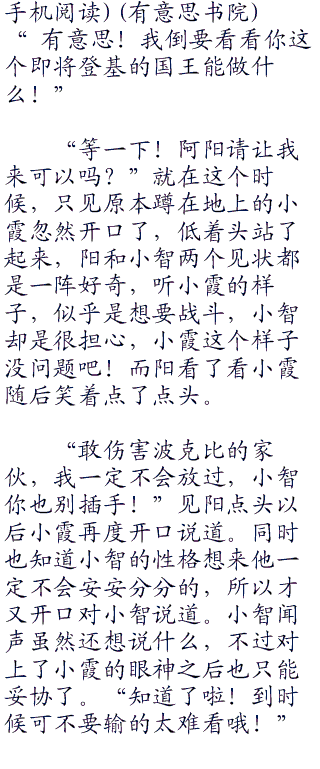 手机阅读)(有意思书院)
“ 有意思！我倒要看看你这
个即将登基的国王能做什
么！”
“等一下！阿阳请让我
来可以吗？”就在这个时
候，只见原本蹲在地上的小
霞忽然开口了，低着头站了
起来，阳和小智两个见状都
是一阵好奇，听小霞的样
子，似乎是想要战斗，小智
却是很担心，小霞这个样子
没问题吧！而阳看了看小霞
随后笑着点了点头。
“敢伤害波克比的家
伙，我一定不会放过，小智
你也别插手！”见阳点头以
后小霞再度开口说道。同时
也知道小智的性格想来他一
定不会安安分分的，所以才
又开口对小智说道。小智闻
声虽然还想说什么，不过对
上了小霞的眼神之后也只能
妥协了。“知道了啦！到时
候可不要输的太难看哦！”